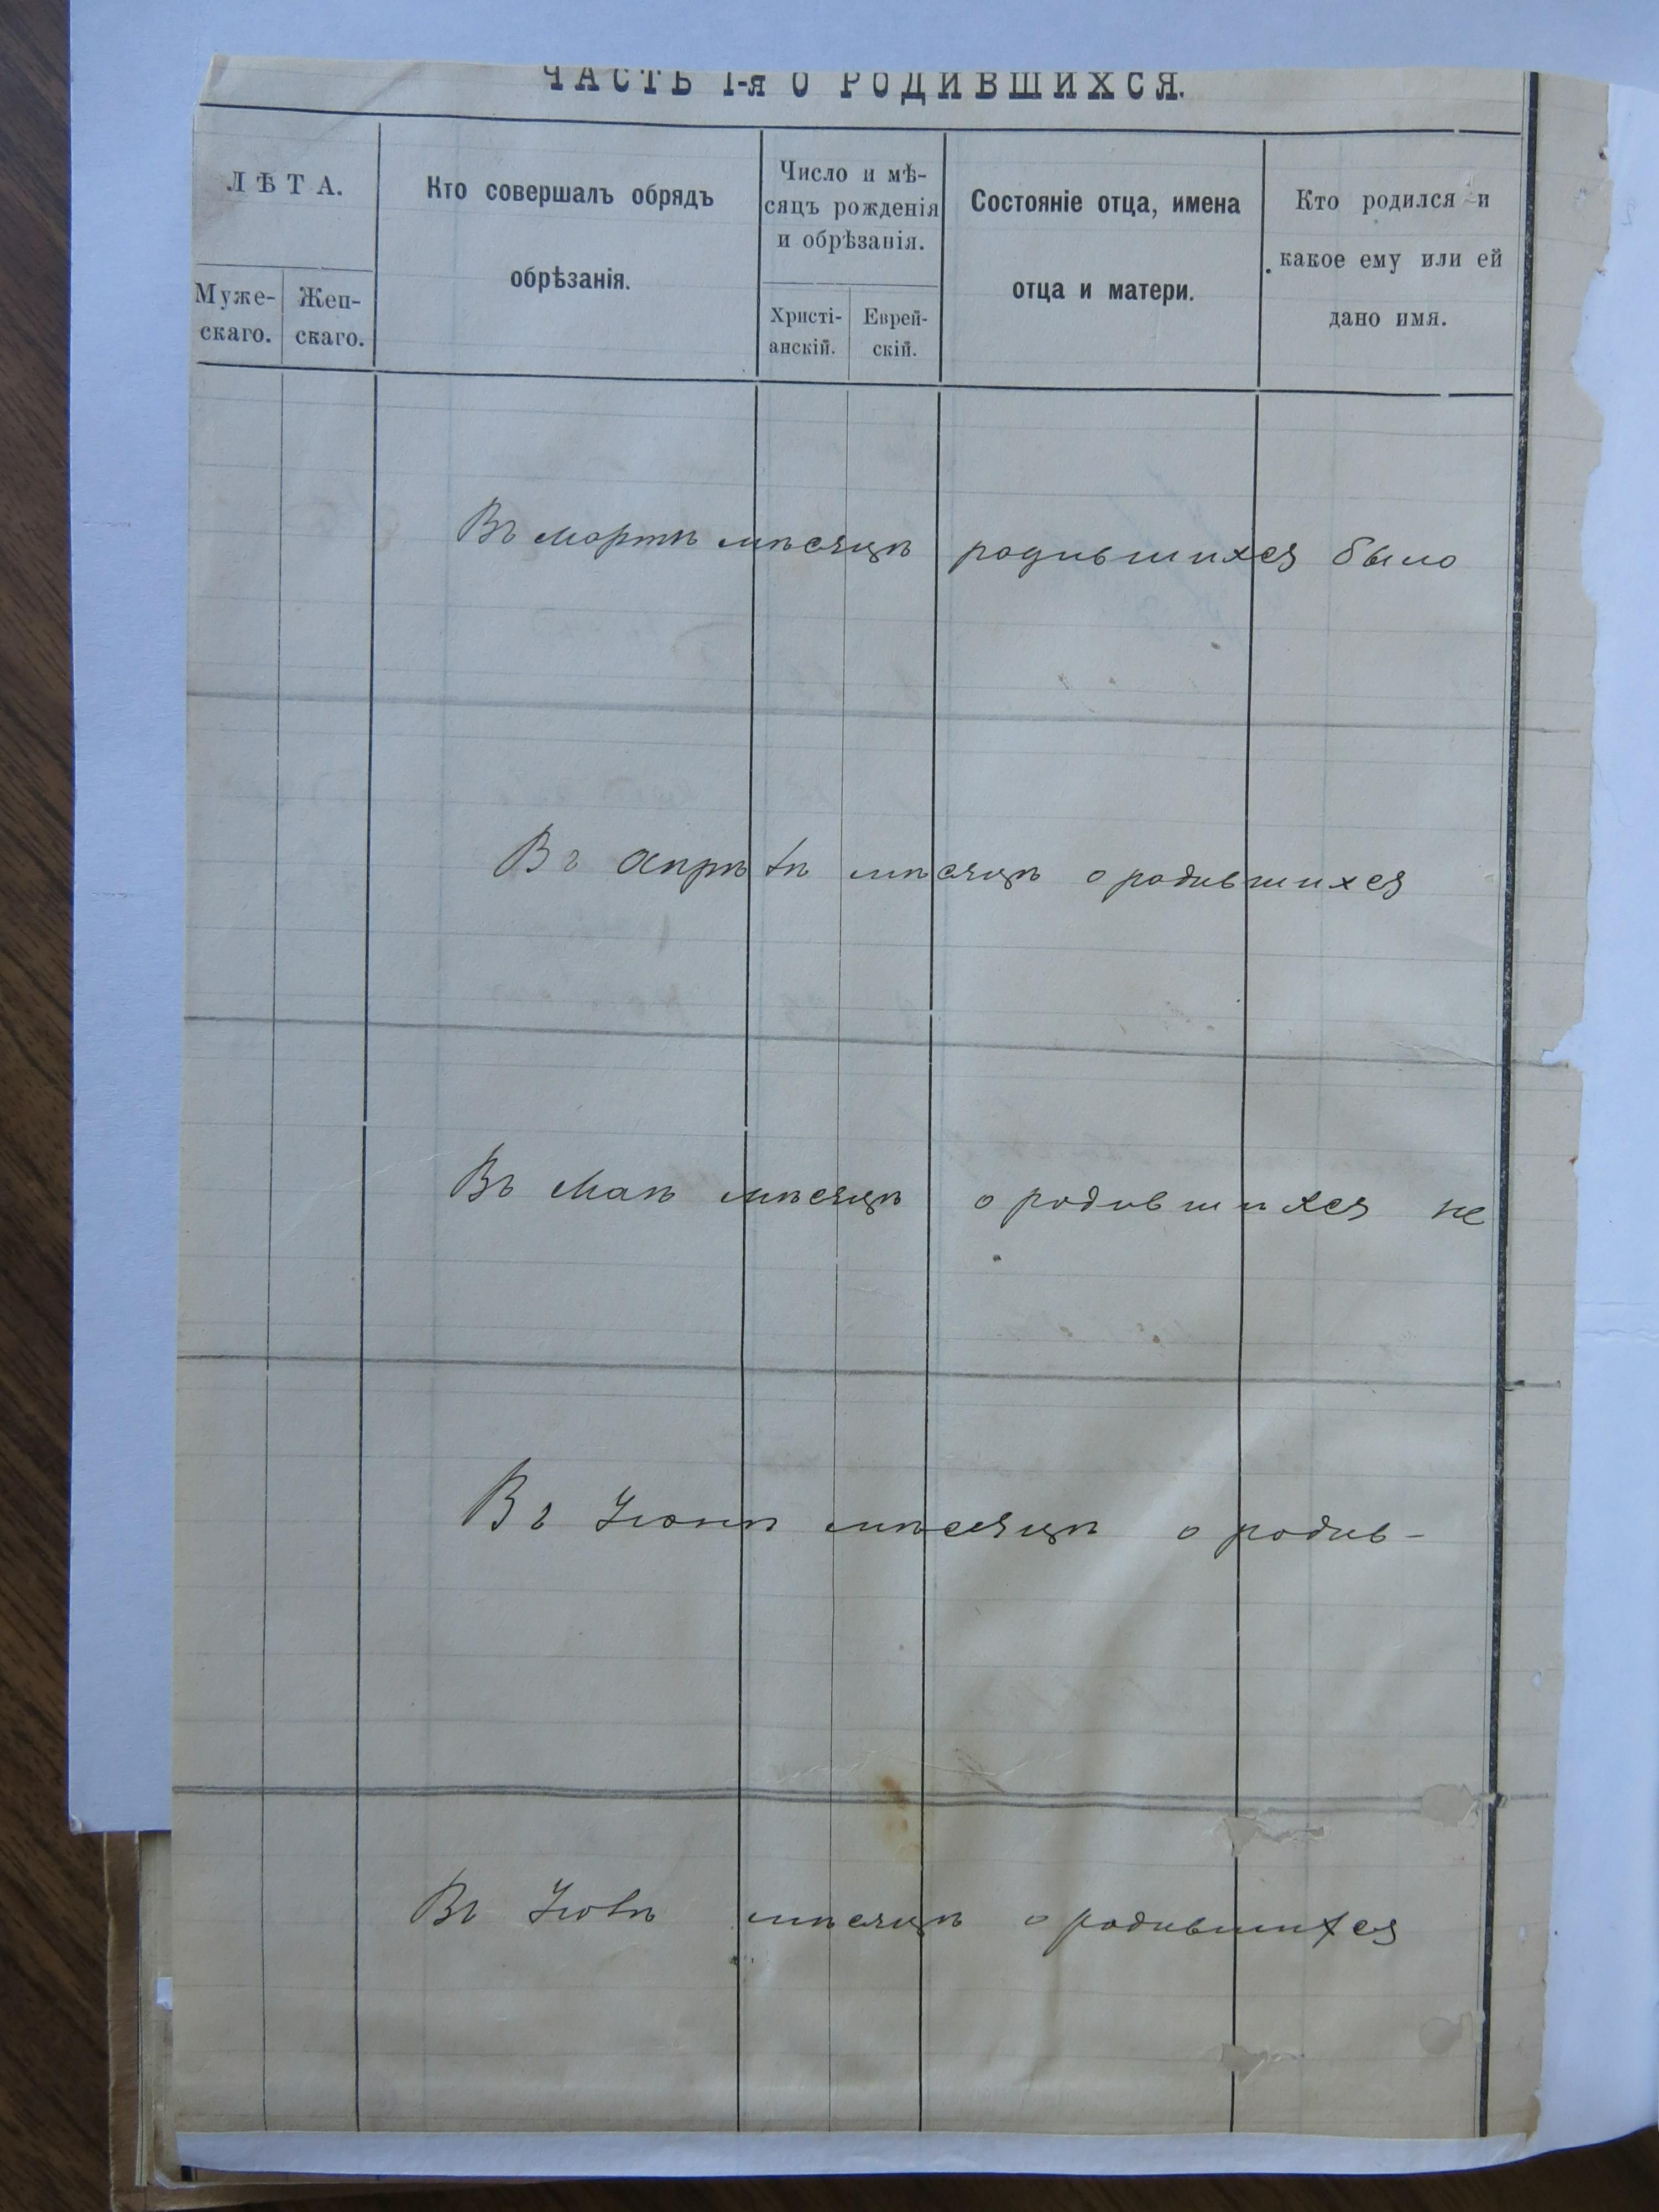 ЧАСТЬ I-я О РОДИВШИХСЯ.
ЛѢТА.
Муже-
скаго.
Жен-
скаго.
Кто совершалъ обрядъ
обрѣзанія.
Число и мѣ-
сяцъ рожденія
и обрѣзанія.
Христі-
анскій.
Еврей-
скій.
Состояніе отца, имена
отца и матери.
Кто родился и
какое ему или ей
дано имя.
Въ мартѣ мѣсяцѣ родившихся было
Въ апрѣлѣ мѣсяцѣ о родившихся
Въ маѣ мѣсяцѣ о родившихся не
Въ Іюнѣ мѣсяцѣ о родив-
Въ Іюлѣ мѣсяцѣ о родившихся